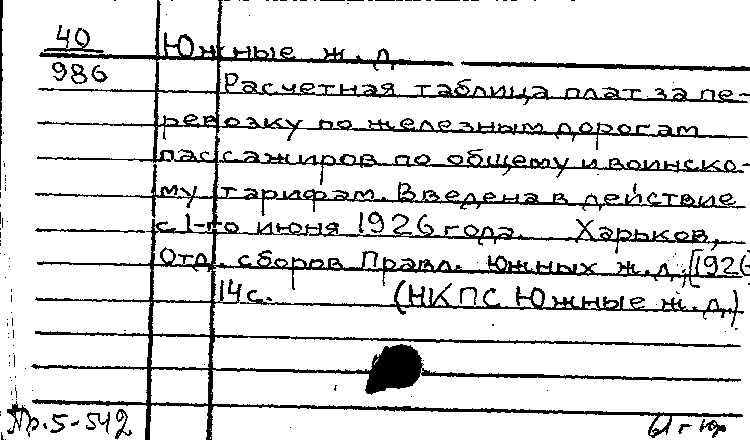 40
986
Южные ж. д.
Расчетная таблица плат за пе-
ревозку по железным дорогам
пассажиров по общему и воинско-
му тарифам. Введена в действие
с 1-го июня 1926 года. Харьков,
Отд. сборов Правл. Южных ж.д., [1926
14 с. (НКПС Южные ж.д.)
Пр. 5-542